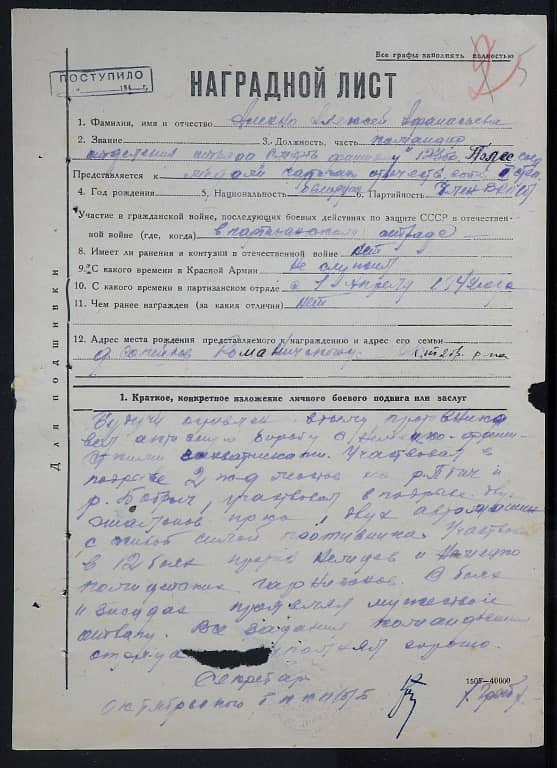 Все графы заполнять полностью
2
5
ПОСТУПИЛО
НАГРАДНОЙ ЛИСТ
1. Фамилия, имя и отчество Алексей Афанасьевич
2. Звание 3. Должность, часть командир
отделения отряда "Смерть фашизму" Полес
Представляется к медали партизан отечеств. II степ.
4. Год рождения 5. Национальность беларус 6. Партийность Член ВКП(б)
7. Участие в гражданской войне, последующих боевых действиях по защите СССР в отечествен-
ной войне (где, когда) в партизанском отряде
8. Имеет ли ранения и контузии в отечественной войне Нет
9. С какого времени в Красной Армии Не служил
10. С какого времени в партизанском отряде с апреля 1942 года
11. Чем ранее награжден (за какие отличия) Нет
12. Адрес места рождения представляемого к награждению и адрес его семьи
Октябр. р-на
Для подшивки
1. Краткое, конкретное изложение личного боевого подвига или заслуг
Будучи в тылу противника
вел активную борьбу с немецко-фаши-
стскими захватчиками. Участвовал в
подрыве 2 ж-д мостов на р. Птич и
р. участвовал в подрыве
эшелонов пр-ка, двух автомашин
с живой силой противника. Участвовал
в 12 боях против немцев и немецко
полицейских гарнизонов. В боях
и засадах проявлял мужество и
отвагу. Все задания командования
выполнял хорошо.
Секретарь
Октябрьского КП(б)Б
1505—40000